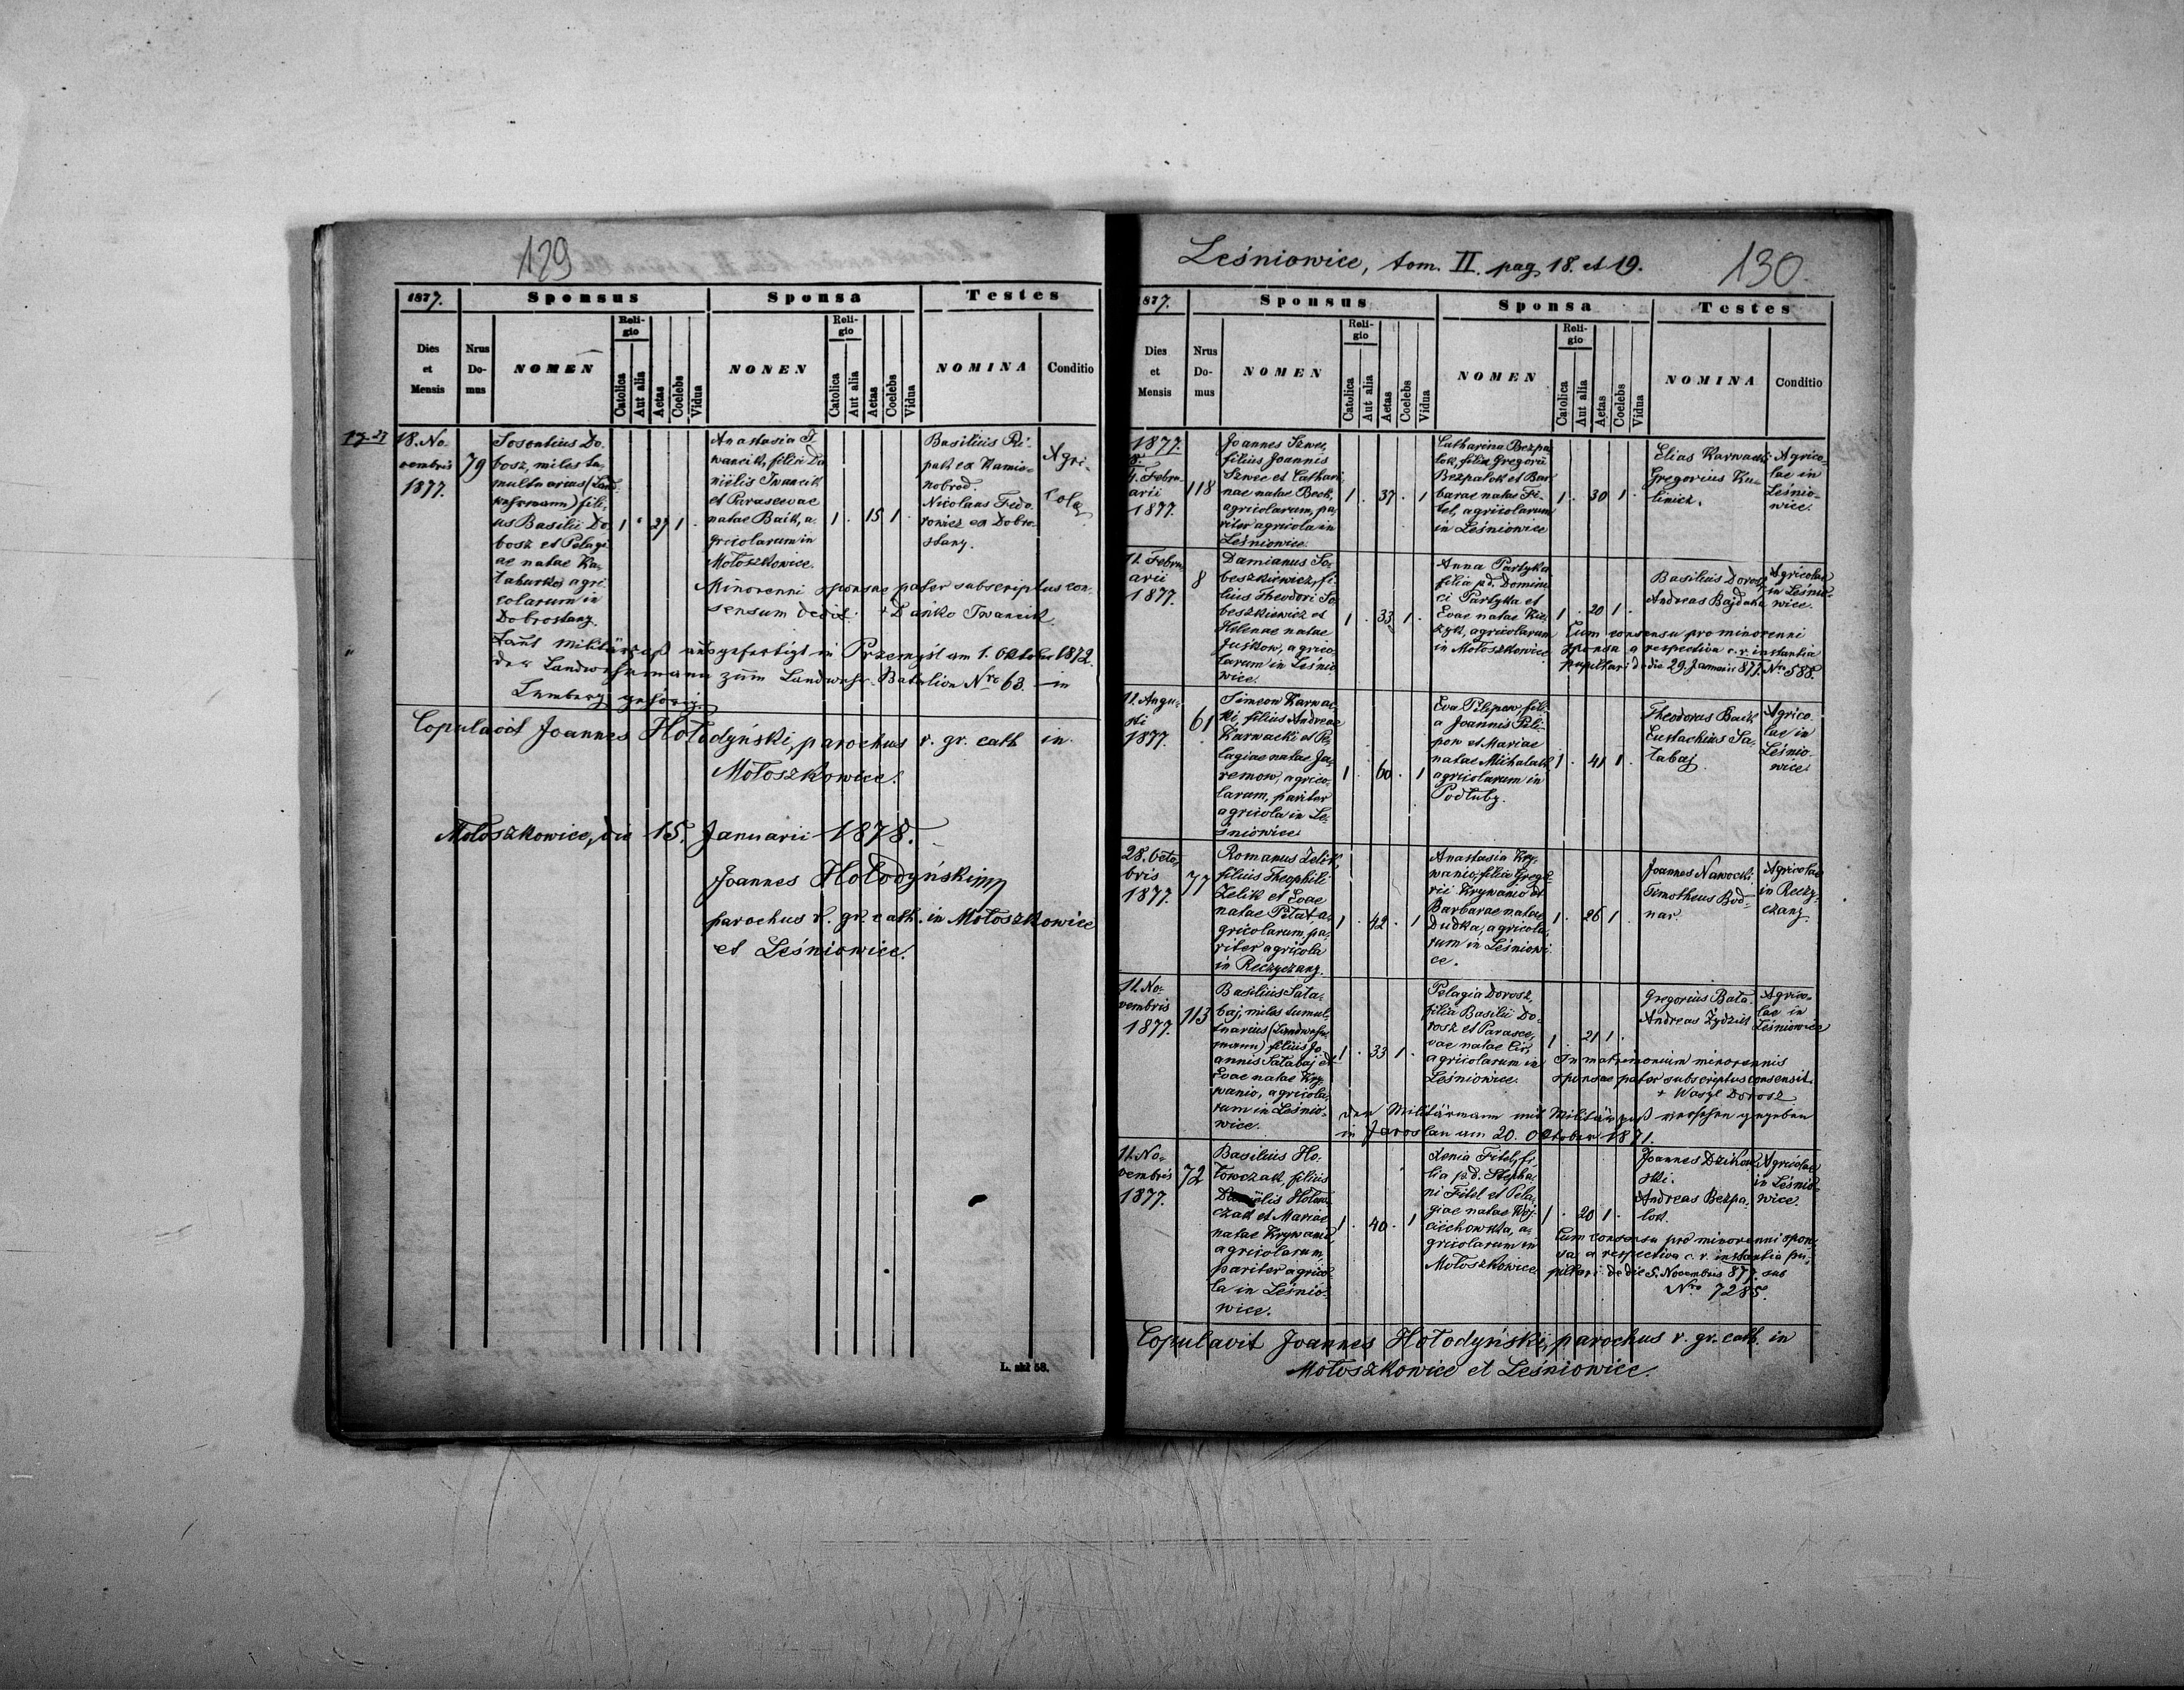 129
1877.
Sponsus
Sponsa
Testes
Dies et Mensis
Nrus Do- mus
NOMEN
Religio
Catolica
Aut alia
Aetas
Coelebs
Vidua
NONEN
Religio
Catolica
Aut alia
Aetas
Coelebs
Vidua
NOMINA
Conditio
18. No-
vembris
1877.
79
Sosontius Do-
bosz, miles tu-
multuarius (Land-
wehrmann) fili-
us Basilii Do-
bosz et Pelagi-
ae natae Ka-
agri-
colarum in
Dobrostany.
1 . 27 1 .
Anastasia I-
wancik, filia Da-
nielis Iwancik
et Parasevae
natae Baik, a-
gricolarum in
Mołoszkowice.
1 . 15 1 .
Basilius Ri-
pak ex Kamie-
nobrod.
Nicolaus Fedo-
rowicz ex Dobro-
stany.
Agri-
colae
Minorenni sponsae pater subscriptus con-
sensum dedit: + Dańko Iwancik
Laut Militärpaß ausgefertigt in Przemyśl am 1. Oktober 1872.
der Landwehrmann zum Landwehr-Batalion Nro 63. in
Lemberg gehörig.
Copulavit Joannes Hołodyński, parochus r. gr. cath. in
Mołoszkowice.
Mołoszkowice, die 15. Januarii 1878.
Joannes Hołodyński mp
parochus r. gr. cath. in Mołoszkowice
et Leśniowice.
L. skł 58.
Leśniowice, tom. II. pag. 18. et 19.
130.
877.
Sponsus
Sponsa
Testes
Dies et Mensis
Nrus Do- mus
NOMEN
Religio
Catolica
Aut alia
Aetas
Coelebs
Vidua
NOMEN
Religio
Catolica
Aut alia
Aetas
Coelebs
Vidua
NOMINA
Conditio
1877.
Febru-
arii
1877.
118
Joannes Szwec,
filius Joannis
Szwec et Cathari-
nae natae Beck,
agricolarum, pa-
riter agricola in
Leśniowice.
1 . 37 . 1
Catharina Bezpa-
lok, filia Gregorii
Bezpalok et Bar-
barae natae Fi-
tel, agricolarum
in Leśniowice
1 . 30 1 .
Elias Karwacki
Gregorius Ku-
linicz.
Agrico-
lae in
Leśnio-
wice.
11. Febru-
arii
1877.
8
Damianus So-
beszkiewicz, fi-
lius Theodori So-
beszkiewicz et
Helenae natae
Juśkow, agrico-
larum in Leśnio-
wice.
1 . 33 1 .
Anna Partyka
filia pd. Domini-
ci Partyka et
Evae natae
agricolarum
in Mołoszkowice
1 . 20 1 .
Basilius Dorosz
Andreas Bajdała
Agricolae
in Leśnio-
wice.
Cum consensu pro minorenni
sponsa a respectiva c. r. instantia
pupillari de die 29. Januarii 877. No 588.
11. Augu-
sti
1877.
61
Simeon Karwac-
ki, filius Andreae
Karwacki et Pe-
lagiae natae Ja-
remow, agrico-
larum, pariter
agricola in Le-
śniowice
1 . 60 . 1
Eva Pilipow, fili-
a Joannis Pili-
pow et Mariae
natae Michalak
agricolarum in
Podłuby.
1 . 41 1 .
Theodorus Baik
Eustachius Sa-
łabaj.
Agrico-
lae in
Leśnio-
wice
28. Octo-
bris
1877.
77
Romanus Zelik,
filius Theophili
Zelik et Evae
natae Pełat, a-
gricolarum, pa-
riter agricola
in Reczyczany.
1 . 42 . 1
Anastasia Kry-
wanio, filia Grego-
rii Krywanio et
Barbarae natae
Dudka, agricola-
rum in Leśniowi-
ce.
1 . 26 1 .
Joannes Nawocki
Timotheus Bod-
nar.
Agricolae
in Reczy-
czany.
11. No-
vembris
1877.
113
Basilius Sała-
baj, miles tumul-
tuarius (Landwehr-
mann) filius Jo-
annis Sałabaj et
Evae natae Kry-
wanio, agricola-
rum in Leśnio-
wice.
1 . 33 1 .
Pelagia Dorosz,
filia Basilii Do-
rosz et Parasce-
vae natae
agricolarum in
Leśniowice.
1 . 21 1 .
Gregorius Bała
Andreas Zydzik
Agrico-
lae in
Leśniowice
In matrimonium minorennis
sponsae pater subscriptus consensit.
+ Wasyl Dorosz
der Militärmann mit Militärpaß versehen gegeben
in Jaroslau am 20. Oktober 1871.
11. No-
vembris
1877.
72
Basilius Ho-
łowczak, filius
Danielis Hołow-
czak et Mariae
natae Krywanio
agricolarum,
pariter agrico-
la in Leśnio-
wice.
1 . 40 . 1
Xenia Fitel, fi-
lia pd. Stepha-
ni Fitel et Pela-
giae natae Woj-
ciechowska, a-
gricolarum in
Mołoszkowice
1 . 20 1 .
Joannes Dzikow-
ski.
Andreas Bezpa-
lok.
Agricolae
in Leśnio-
wice.
Cum consensu pro minorenni spon-
sa a respectiva c. r. instantia pu-
pillari de die 5. Novembris 877. sub
Nro 7285.
Copulavit Joannes Hołodyński, parochus r. gr. cath. in
Mołoszkowice et Leśniowice.